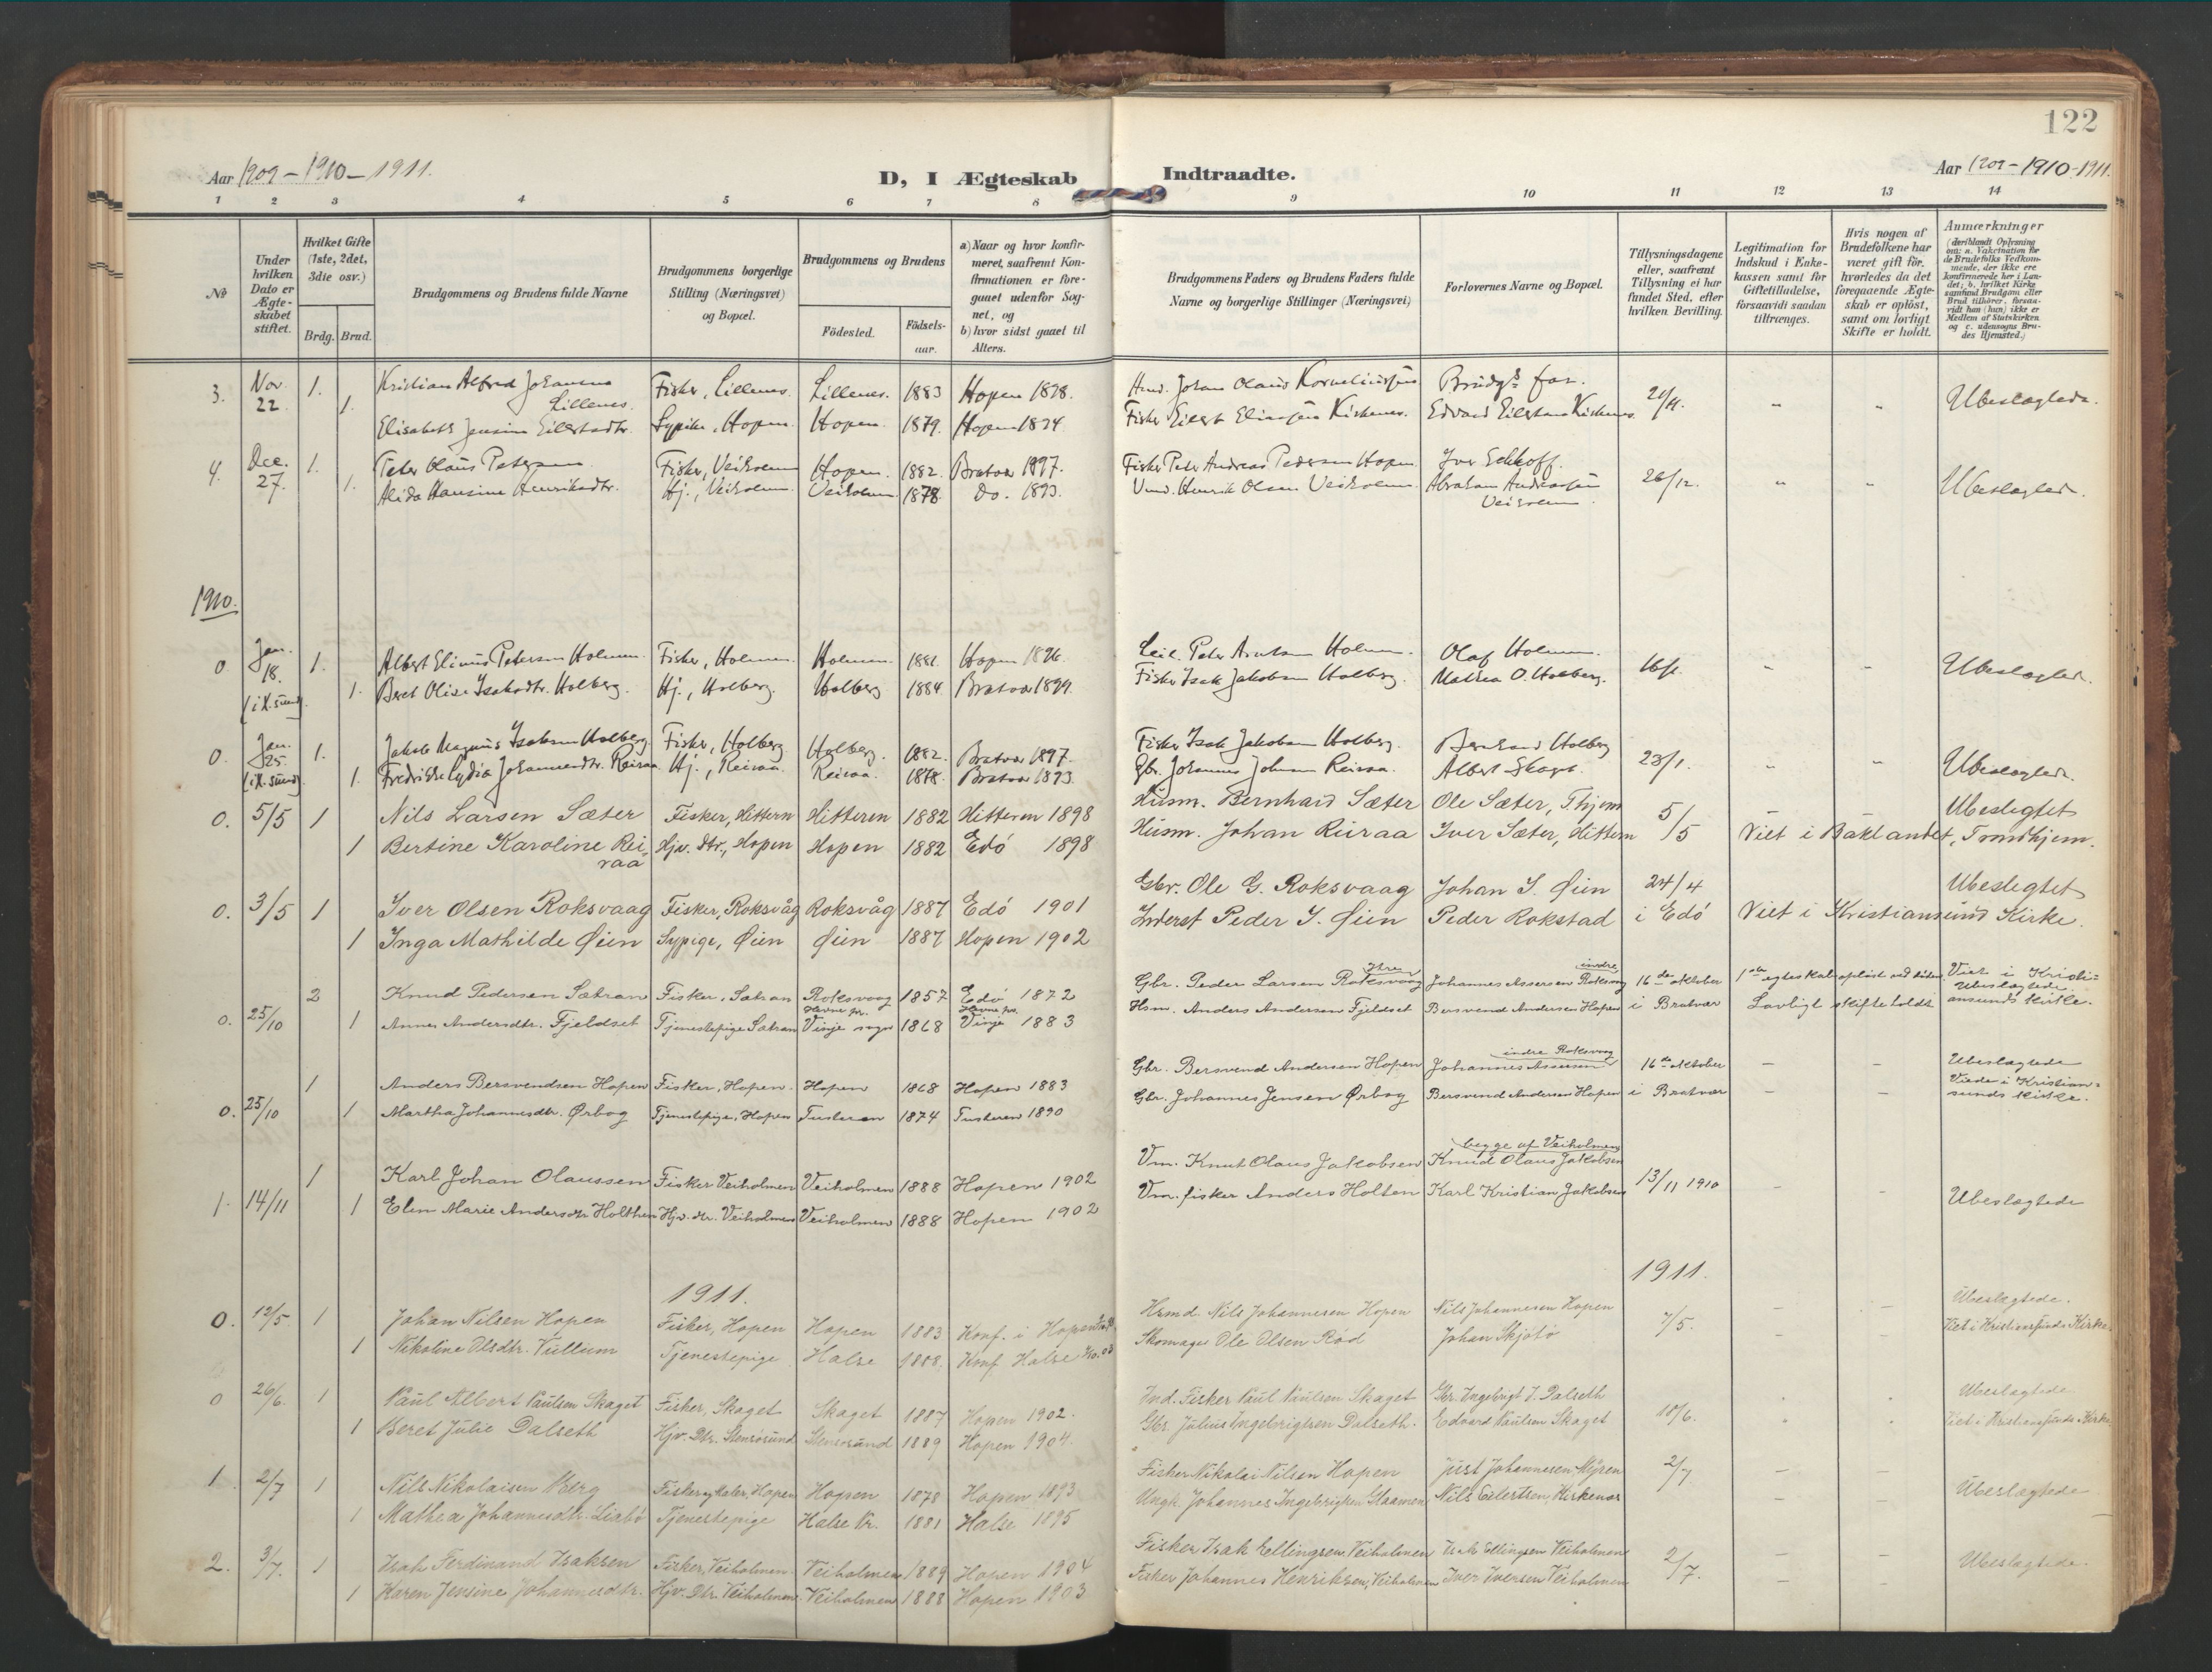 122
Aar 1909 - 1910 - 1911.
D, I Ægteskab Indtraadte.
Aar 1909 - 1910 - 1911.
1 2 3 4 5 6 7 8 9 10 11 12 13 14
No
Under hvilken Dato er Ægteskabet stiftet.
Hvilket Gifte (1ste, 2det, 3die osv.)
Brdg. Brud.
Brudgommens og Brudens fulde Navne
Brudgommens borgerlige Stilling (Næringsvei) og Bopæl.
Brudgommens og Brudens
Födested. Födselsaar.
a) Naar og hvor konfirmeret, saafremt Konfirmationen er foregaaet udenfor Sognet, og
b) hvor sidst gaaet til Alters.
Brudgommens Faders og Brudens Faders fulde Navne og borgerlige Stillinger (Næringsvei)
Forlovernes Navne og Bopæl.
Tillysningsdagene eller, saafremt Tillysning ei har fundet Sted, efter hvilken Bevilling.
Legitimation for Indskud i Enkekassen samt for Giftetilladelse, forsaavidt saadan tiltrænges.
Hvis nogen af Brudefolkene har været gift för, hvorledes da det foregaaende Ægteskab er oplöst, samt om lovligt Skifte er holdt.
Anmærkninger
(deriblandt Oplysning om: a. Vakcination for de Brudefolks Vedkommende, der ikke ere konfirmerede her i Landet; b. hvilket Kirkesamfund Brudgom eller Brud tilhörer, forsaavidt han (hun) ikke er Medlem af Statskirken og c. udensogns Brudes Hjemsted.)
3. Nov. 22 1. Kristian Alfred Johansen Lillenes. Fisker, Lillenes. Lillenes. 1883 Hopen 1898. Johan Olaus Korneliussen Brudgs far. Ubeslægtede.
1. Elisabeth Jensine Eilertsdtr. Sypike, Hopen. Hopen. 1879. Hopen 1894. Fisker Eilert Eliassen Kirkenes. Edvard Eilertsen Kirkenes.
4. Dec. 27. 1. Peter Olaus Petersen Fisker, Veiholmen Hopen. 1882. Bratvær 1897. Fisker Peter Andreas Pedersen Hopen. Iver Eckhoff. 26/12. Ubeslægtede.
1. Alida Hansine Henriksdtr. Hj., Veiholmen Veiholmen 1878. Do. 1893. Henrik Olsen Veiholmen Abraham Andreassen Veiholmen
1910.
0 Jan. 18. (i K.sund). 1. Albert Elinus Petersen Holmen. Fisker, Holmen. Holmen. 1881. Hopen 1896. Peter Holmen. Olaf Holmen. 16/1. Ubeslægtede.
1. Beret Olise Isaksdtr. Holberg. Hj., Holberg. Holberg 1884. Bratvær 1899. Fisker Isak Jakobsen Holberg. Mathea O. Holberg.
0. Jan. 25. (i K.sund) 1. Jakob Magnus Isaksen Holberg Fisker, Holberg Holberg. 1882. Bratvær 1897. Fisker Isak Jakobsen Holberg. Bernhard Holberg 23/1. Ubeslægtede.
1. Fredrikke Lydia Johannesdtr. Reiraa. Hj., Reiraa. Reiraa. 1878. Bratvær 1893. Gbr. Johannes Johnsen Reiraa. Albert Skaget.
0. 5/5 1 Nils Larsen Sæter Fisker, Hittern Hitteren 1882 Hitteren 1898 Husm. Bernhard Sæter Ole Sæter, Thjem 5/5 Ubeslegtet
1 Bertine Karoline Reiraa Hjv. dtr., Hopen Hopen 1882 Edö 1898 Husm. Johan Reiraa Iver Sæter, Hittern Viet i Baklandet, Trondhjem.
0. 3/5 1 Iver Olsen Roksvaag Fisker, Roksvåg Roksvåg 1887 Edö 1901 Gbr. Ole G. Roksvaag Johan I. Øien 24/4 Ubeslegtet
1 Inga Mathilde Øien Sypige, Øien Øien 1887 Hopen 1902 Inderst Peder I. Øien Peder Rokstad i Edö Viet i Kristiansund Kirke.
0. 25/10 2 Knud Pedersen Sætran Fisker, Sætran Roksvaag 1857 Edö 1872 Gbr. Peder Larsen Ytre Roksvaag Johannes Assersen indre Roksvaag 16de oktober 1ste egteskab oplöst ved döden Viet i Kristiansunds kirke. Ubeslægtede.
1 Anne Andersdtr. Fjeldset Tjenestepige Sætran Hevne pr. Vinje sogn 1868 Hevne pr. Vinje 1883 Hsm. Anders Andersen Fjeldset Bersvend Andersen Hopen i Bratvær Lovligt skifte holdt
0. 25/10 1 Anders Bersvendsen Hopen Fisker, Hopen. Hopen 1868 Hopen 1883 Gbr. Bersvend Andersen Hopen Johannes Assersen indre Roksvaag 16de oktober Ubeslægtede
1 Martha Johannesdtr. Ørbog Tjenestepige, Hopen Tusteren 1874 Tusteren 1890 Gbr. Johannes Jensen Ørbog Bersvend Andersen Hopen i Bratvær Viede i Kristiansunds kirke.
1. 14/11 1 Karl Johan Olaussen Fisker Veiholmen Veiholmen 1888 Hopen 1902 Vm. Knut Olaus Jakobsen Knud Olaus Jakobsen begge af Veiholmen 13/11 1910 Ubeslægtede
1 Elen Marie Andersdtr Holthen Hjv. dtr. Veiholmen Veiholmen 1888 Hopen 1902 Vm. fisker Anders Holten Karl Kristian Jakobsen
1911. 1911.
0. 12/5. 1 Johan Nilsen Hopen Fisker, Hopen Hopen 1883 Konf. i Hopen Hsmd. Nils Johannesen Hopen Nils Johannesen Hopen 7/5. Ubeslægtede.
1 Nikoline Olsdtr. Vullum Tjenestepige Halse 1888. Konf Halse Skomager Ole Olsen Rød Johan Skjötö Viet i Kristiansunds Kirke.
0 26/6. 1 Paul Albert Paulsen Skaget Fisker, Skaget Skaget 1887 Hopen 1902. Ind. Fisker Paul Paulsen Skaget Gbr. Ingebrigt J. Dalseth 18/6. Ubeslægtede
1 Beret Julie Dalseth Hjv. Dtr. Stensösund Stensösund 1889 Hopen 1904. Gbr. Julius Ingebrigtsen Dalseth. Edvard Paulsen Skaget Viet i Kristiansunds Kirke
1 2/7 1 Nils Nikolaisen Berg Hopen Hopen 1878 Hopen 1893 Fisker Nikolai Nilsen Hopen Just Johannesen Myren 2/7 Ubeslægtede
1 Mathea Johannesdtr. Liabö Tjenestepige Halse Pr. 1881 Halse 1895 Ungk. Johannes Ingebrigtsen Glaamen Nils Eilertsen, Kirkenes
2. 3/7. 1 Isak Ferdinand Isaksen Fisker, Veiholmen. Veiholmen 1889 Hopen 1904 Fisker Isak Ellingsen, Veiholmen Isak Ellingsen Veiholmen 2/7. Ubeslægtede.
1 Karen Jensine Johannesdtr. Hjv. Dtr. Veiholmen. Veiholmen 1888 Hopen 1903 Fisker Johannes Henriksen, Veiholmen Iver Iversen Veiholmen